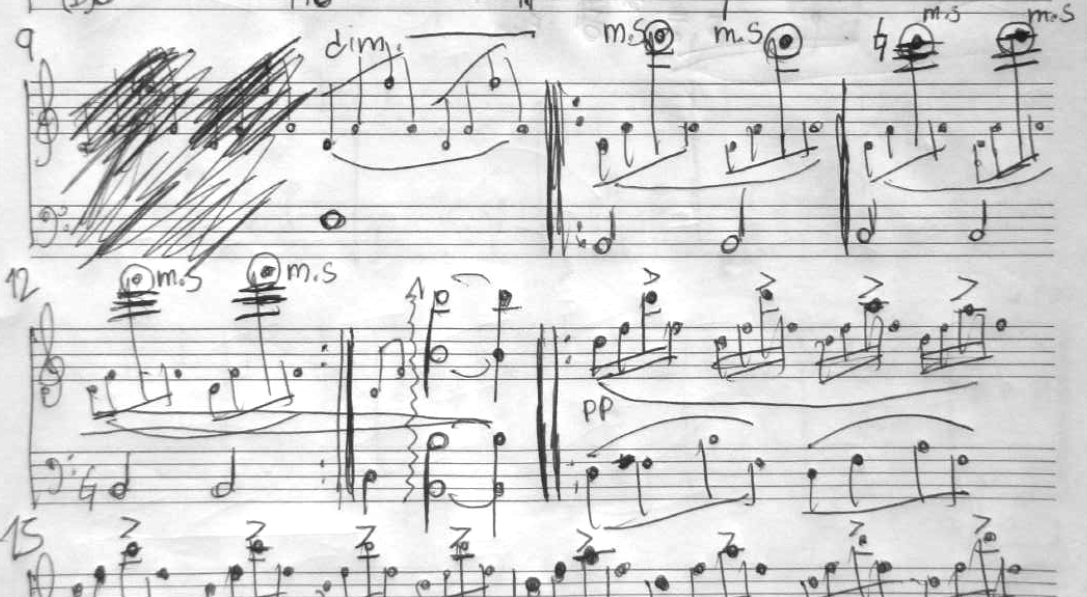 9 dim. m.s m.s m.s m.s
12 m.s m.s
pp
15